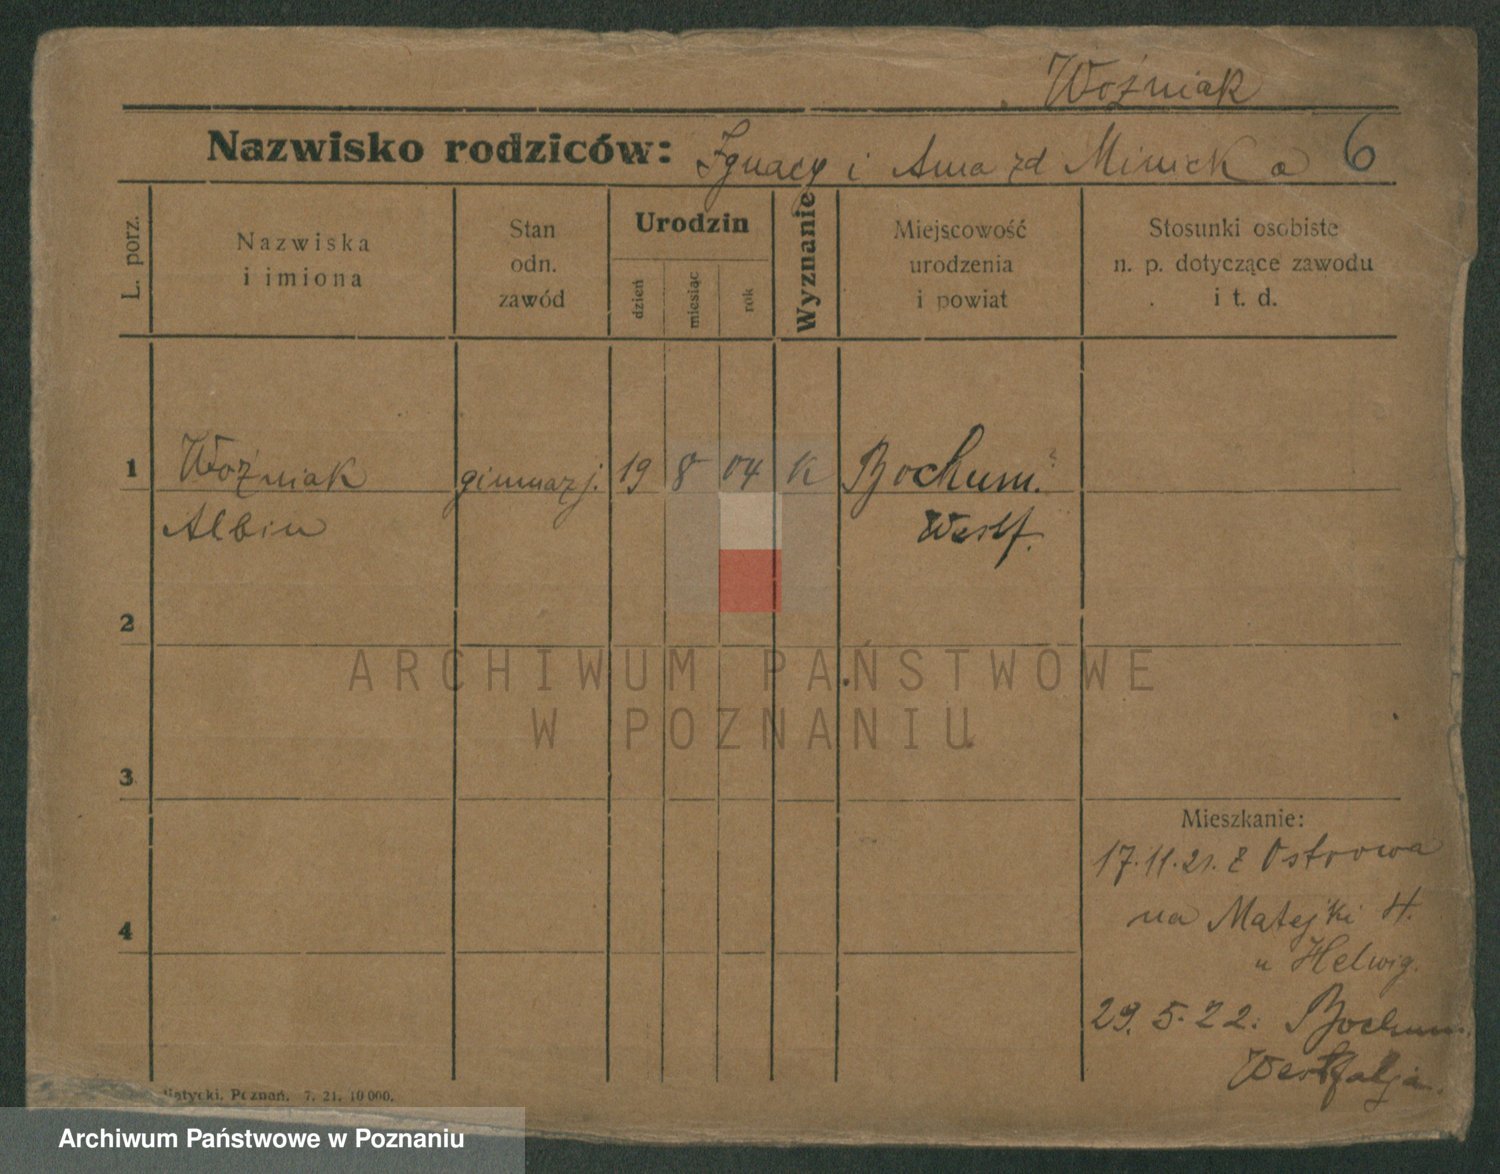 Woźniak
Nazwisko rodziców: Ignacy i Anna zd Mimcka 6
L. porz.
Nazwiska
i imiona
Stan
odn.
zawód
Urodzin
dzień
miesiąc
rok
Wyznanie
Miejscowość
urodzenia
i powiat
Stosunki osobiste
n. p. dotyczące zawodu
i t. d.
1 Woźniak gimnazj. 19 8 04 K Bochum.
Albin Westf.
2
3
4
ARCHIWUM PAŃSTWOWE
W POZNANIU
Mieszkanie:
17.11.21. z Ostrowa
na Matejki 4.
u Helwig.
29.5.22. Bochum
Westfalja.
Poznań. 7. 21. 10 000.
Archiwum Państwowe w Poznaniu